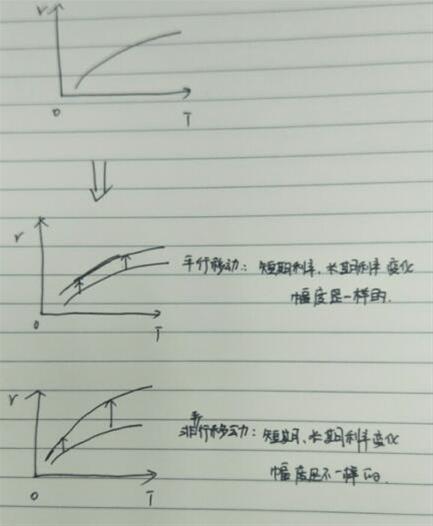 r
0
T
r
平行移动：短期利率、长期利率变化
幅度是一样的.
0
T
r
平
非行移动：短期、长期利率变化
幅度是不一样的.
0
T